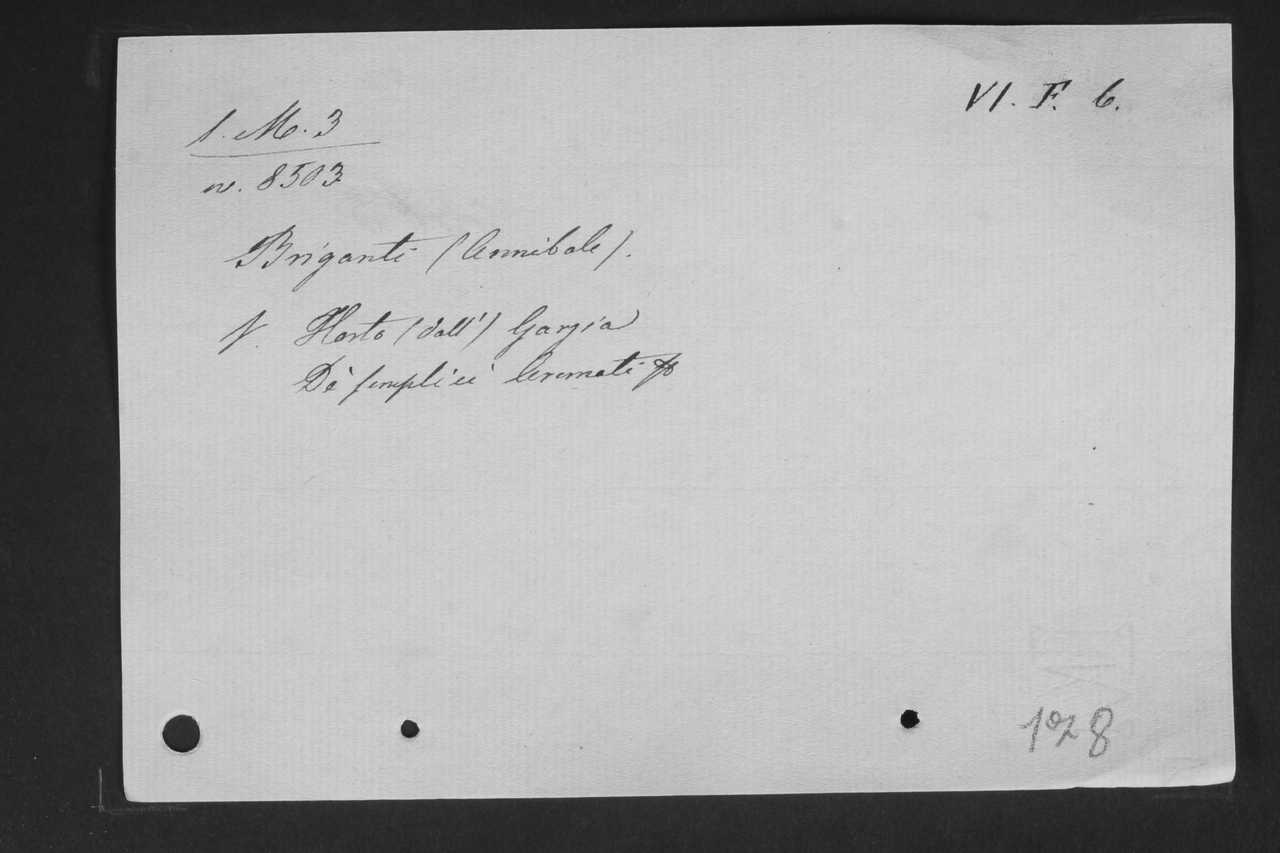 VI. F. 6.
1. M. 3
n. 8503
Briganti (Annibale).
V. Horto (dall') Garzia
De' semplici Aromati